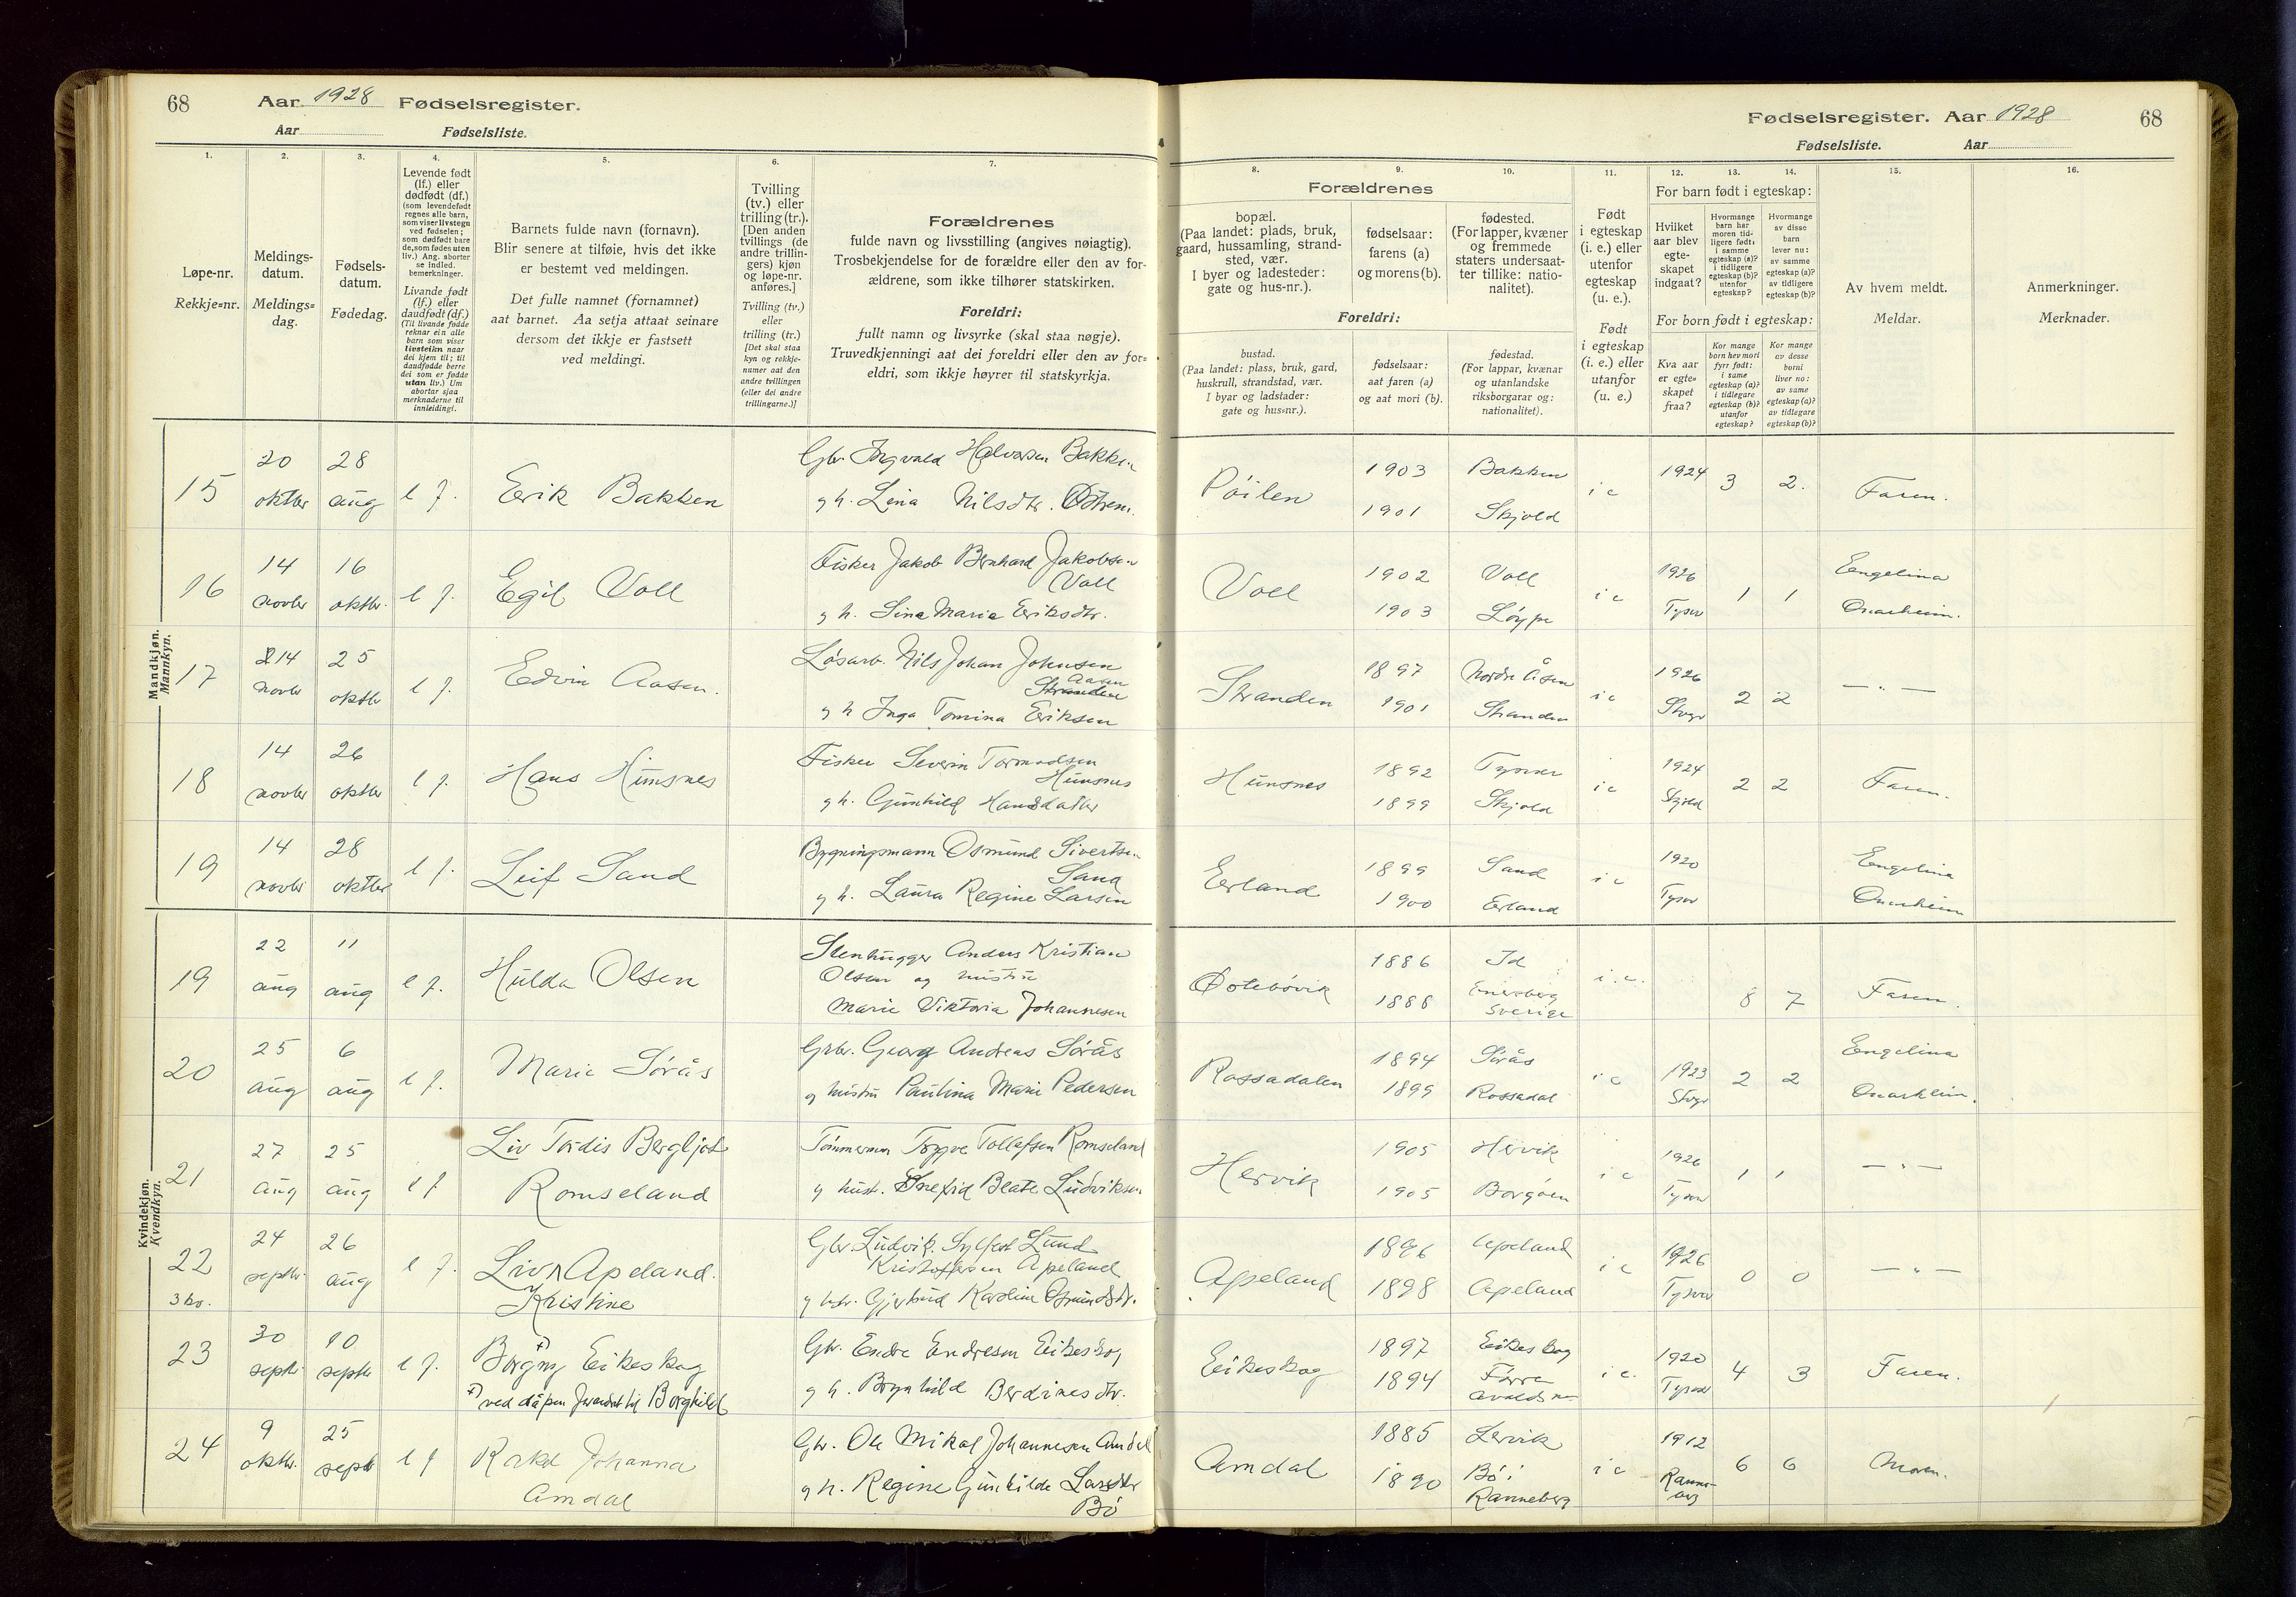 68 Aar 1928 Fødselsregister.
Aar Fødselsliste.
1. 2. 3. 4. 5. 6. 7.
Løpe-nr.
Rekkje=nr.
Meldings-
datum.
Meldings=
dag.
Fødsels-
datum.
Fødedag.
Levende født
(lf.) eller
dødfødt (df.)
(som levendefødt
regnes alle barn,
som viser livstegn
ved fødselen;
som dødfødt bare
de, som fødes uten
liv.) Ang. aborter
se indled.
bemerkninger.
Livande født
(lf.) eller
daudfødt (df.)
(Til livande fødde
reknar ein alle
barn som viser
livsteikn naar
dei kjem til; til
daudfødde berre
dei som er fødde
utan liv.) Um
abortar sjaa
merknaderne til
innleidingi.
Barnets fulde navn (fornavn).
Blir senere at tilføie, hvis det ikke
er bestemt ved meldingen.
Det fulle namnet (fornamnet)
aat barnet. Aa setja attaat seinare
dersom det ikkje er fastsett
ved meldingi.
Tvilling
(tv.) eller
trilling (tr.).
[Den anden
tvillings (de
andre trillin-
gers) kjøn
og løpe-nr.
anføres.]
Tvilling (tv.)
eller
trilling (tr.)
[Det skal staa
kyn og rekkje-
numer aat den
andre tvillingen
(eller dei andre
trillingarne.)]
Forældrenes
fulde navn og livsstilling (angives nøiagtig).
Trosbekjendelse for de forældre eller den av for-
ældrene, som ikke tilhører statskirken.
Foreldri:
fullt namn og livsyrke (skal staa nøgje).
Truvedkjenningi aat dei foreldri eller den av for=
eldri, som ikkje høyrer til statskyrkja.
Mandkjøn.
Mannkyn.
15 20 oktbr 28 aug l f. Erik Bakken
Gbr. Ingvald Halvorsen Bakken
g h. Lina Nilsdtr.
16 14 novbr 16 oktbr. l f. Egil Voll
Fisker Jakob Bernhard Jakobsen
Voll
g h. Lina Maria Eriksdtr.
17 14 novbr 25 oktbr l f. Edvin Aasen.
Løsarb. Nils Johan Johnsen
Aasen
Stranden
g h Inga Tomina Eriksen
18 14 novbr 26 oktbr l f. Hans Hunsnes
Fisker Severin Tormodsen
Hunsnes
g h. Gunhild Hansdatter
19 14 novbr 28 oktbr l f. Leif Sand
Bygningsmann Osmund Sivertsen
Sand
g h. Laura Regine Larsen
Kvindekjøn.
Kvendkyn.
19 22 aug 11 aug l f. Hulda Olsen
Stenhugger Anders Kristian
Olsen og hustru
Marie Viktoria Johannesen
20 25 aug 6 aug l f. Marie Sörås
Grbr. Georg Andreas Sörås
g hustru Paulina Marie Pedersen
21 27 aug 25 aug l f Liv Tordis Bergljot
Romseland
Tömmerm Trygve Tollefsen Romseland
g hust. Beate Ludviksen
22 24 septbr 26 aug l f. Liv Apeland.
3 kv. Kristine
Gbr. Ludvik. Sylfest Lund
Kristoffersen Apeland
g hstr. Gjertrud Karoline
23 30 septbr 10 septbr l f. Borgny Eikeskog
+) ved dåpen forandret til Borghild
Gbr. Endre Endresen Eikeskog
g h. Brynhild Berdinesdtr.
24 9 oktbr. 25 septbr l f Rakel Johanna
Amdal
Gbr. Ole Mikal Johannesen Amdal
g h. Regine Gunhilde Larsdtr
Bö
Fødselsregister. Aar 1928 68
Fødselsliste. Aar
8. 9. 10. 11. 12. 13. 14. 15. 16.
Forældrenes
bopæl.
(Paa landet: plads, bruk,
gaard, hussamling, strand-
sted, vær.
I byer og ladesteder:
gate og hus-nr.).
fødselsaar:
farens (a)
og morens (b).
fødested.
(For lapper, kvæner
og fremmede
staters undersaat-
ter tillike: natio-
nalitet).
Foreldri:
bustad.
(Paa landet: plass, bruk, gard,
huskrull, strandstad, vær.
I byar og ladstader:
gate og hus=nr.).
fødselsaar:
aat faren (a)
og aat mori (b).
fødestad.
(For lappar, kvænar
og utanlandske
riksborgarar og:
nationalitet).
Født
i egteskap
(i. e.) eller
utenfor
egteskap
(u. e.).
Født
i egteskap
(i. e.) eller
utanfor
(u. e.)
For barn født i egteskap:
Hvilket
aar blev
egte-
skapet
indgaat?
Hvormange
barn har
moren tid-
ligere født:
i samme
egteskap (a)?
i tidligere
egteskap (b)?
utenfor
egteskap?
Hvormange
av disse
barn
lever nu:
av samme
egteskap (a)?
av tidligere
egteskap (b)?
For born født i egteskap:
Kva aar
er egte=
skapet
fraa?
Kor mange
born hev mori
fyrr født:
i same
egteskap (a)?
i tidlegare
egteskap (b)?
utanfor
egteskap?
Kor mange
av desse
borni
liver no:
av same
egteskap (a)?
av tidlegare
egteskap (b)?
Av hvem meldt.
Meldar.
Anmerkninger.
Merknader.
Pöilen 1903 Bakken i e 1924 3 2. Faren.
1901 Skjold
Voll 1902 Voll i e 1926 1 1 Engelina
1903 Löype Tysvr Onarheim.
Stranden 1897 Nordre Åsen i e 1926 2 2 — " —
1901 Stranden Stvgr
Hunsnes 1892 Tysvær i e 1924 2 2 Faren.
1899 Skjold Skjold
Eerland 1899 Sand i e 1920 Engelina
1900 Erland Tysvr Onarheim
1886 Id i. e. 8 7 Faren.
1888 Sverige
Rossadalen 1894 Sörås i e 1923 2 2 Engelina
1899 Rossadal Stvgr Onarheim.
Hervik 1905 Hervik i e 1926 1 1 — " —
1905 Borgöen Tysvr
Apeland 1896 Apeland i e 1926 0 0 — " —
1898 Apeland Tysvær
Eikeskog 1897 Eikeskog i e. 1920 4 3 Faren.
1894 Förre Tysvær
Avaldsn
Amdal 1885 Lervik i e 1912 6 6 Moren.
1890 Bö i
Ranneberg